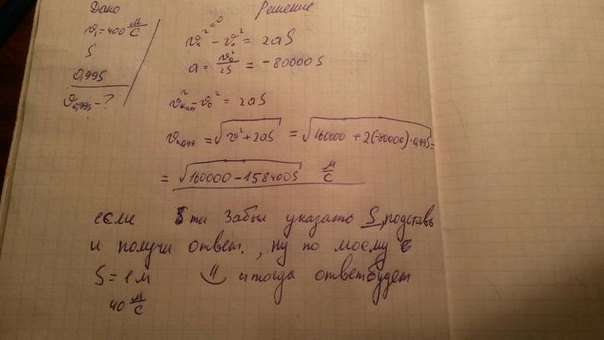 Дано
Решение
v₁ = 400 м/с
S
0,99S
v0,99S - ?
vк² = 0 - v₀² = 2aS
a = v₀²/2S = -80000S
vкон² - v₀² = 2aS
vкон = √v² + 2aS = √160000 + 2(-80000)·0,99S =
= √160000 - 158400S м/с
если ты забыл указать S, подставь
и получи ответ., ну по моему
S = 1 м и тогда ответ будет
40 м/с